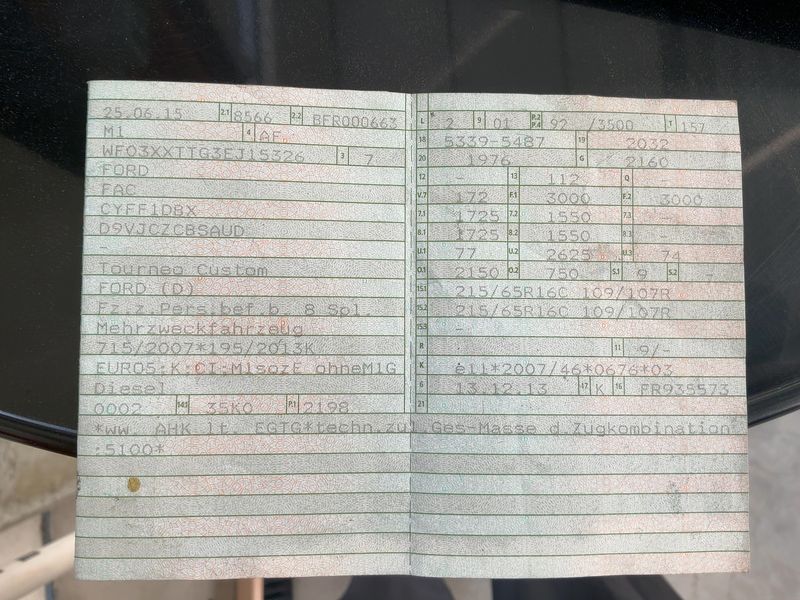 25.06.15 2.1 8566 2.2 BFR000663
M1 4 AF
WF03XXTTG3FJ15326 3 7
FORD
FAC
CYFF1D8X
D9VJCZCBSAUD
-
Tourneo Custom
FORD (D)
Fz.z.Pers.bef.b 8 Spl.
Mehrzweckfahrzeug
715/2007*195/2013K
EURO5;K;CI;M1sozE ohneM1G
Diesel
0002 14.1 35K0 P.1 2198
L 2 9 01 P.2 P.4 92 /3500 T 157
18 5339-5487 19 2032
20 1976 G 2160
12 - 13 112 Q -
V.7 172 F.1 3000 F.2 3000
7.1 1725 7.2 1550 7.3 -
8.1 1725 8.2 1550 8.3 -
U.1 77 U.2 2625 U.3 74
O.1 2150 O.2 750 S.1 9 S.2 -
15.1 215/65R16C 109/107R
15.2 215/65R16C 109/107R
15.3 -
R 11 9/-
K e11*2007/46*0676*03
6 13.12.13 17 K 16 FR935573
21
*ww. AHK lt. EGTG*techn.zul Ges-Masse d.Zugkombination
:5100*